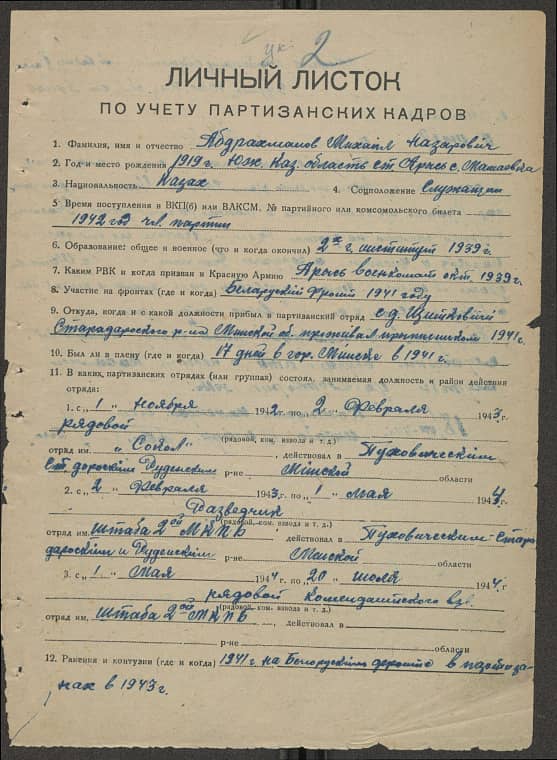 2
ЛИЧНЫЙ ЛИСТОК
ПО УЧЕТУ ПАРТИЗАНСКИХ КАДРОВ
1. Фамилия, имя и отчество Абдрахманов Михаил Назарович
2. Год и место рождения 1919 г. Юж. Каз. область ст. Арысь с.
3. Национальность Казах 4. Соцположение Служащий
5 Время поступления в ВКП(б) или ВЛКСМ, № партийного или комсомольского билета
1942 год чл. партии
6. Образование: общее и военное (что и когда окончил) 2х г. институт 1939 г.
7. Каким РВК и когда призван в Красную Армию Арысь военкомат окт. 1939 г.
8. Участие на фронтах (где и когда) Беларуский фронт 1941 году
9. Откуда, когда и с какой должности прибыл в партизанский отряд с д.
Старадароского р-на Минской об. проживал 1941 г.
10. Был ли в плену (где и когда) 17 дней в гор. Минске в 1941 г.
11. В каких партизанских отрядах (или группах) состоял, занимаемая должность и район действия
отряда:
1. с „1" ноября 1942 г. по „2" Февраля 1943 г.
рядовой
(рядовой, ком. взвода и т. д.)
отряд им. „Сокол" , действовал в Пуховическим
Ст. дорочким Руденским р-не Минской области
2. с „2" Февраля 1943 г. по „1" мая 1944 г.
Разведчик
(рядовой, ком. взвода и т. д.)
отряд им. штаба 2ой МКПБ действовал в Пуховическим Стара
дароским и Руденским р-не Минской области
3. с „1" Мая 1944 г. по „20" июля 1944 г.
рядовой Комендантского взв.
(рядовой, ком. взвода и т. д.)
отряд им. штаба 2ой МКПБ , действовал в
р-не области
12. Ранения и контузии (где и когда) 1941 г. на Белоруским фронте в партиза-
нах в 1943 г.